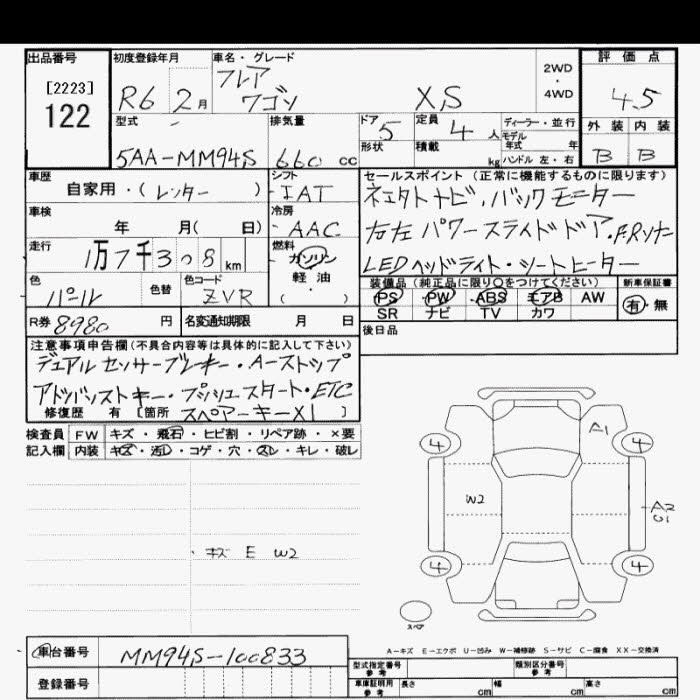 出品番号
[2223]
122
初度登録年月
R6 2月
車名・グレード
フレア
ワゴン XS
2WD
・
4WD
評価点
4.5
外装 内装
B B
型式
5AA-MM94S
排気量
660 cc
ドア 5
形状
定員 4 人
積載 kg
ディーラー・並行
モデル
年式 年
ハンドル 左・右
車歴
自家用・(レンター)
シフト
IAT
セールスポイント(正常に機能するものに限ります)
ネエクトナビ、バックモニター
右左パワースライドドア・F.Rソナー
LEDヘッドライト・シートヒーター
車検
年 月( 日)
冷房
AAC
走行
1万7千308 km
燃料
ガソリン
軽・油
( ・ )
色
パール
色替
色コード
ZVR
装備品(純正品に限り○をつけてください)
PS PW ABS エアB AW
SR ナビ TV カワ
新車保証書
有・無
R券 8980 円
名変通知期限 月 日
後日品
注意事項申告欄(不具合内容等は具体的に記入して下さい)
デュアルセンサーブレーキ・Aーストップ
アドバンストキー・プッシュスタート・ETC
修復歴 有 [箇所 スペアーキーX1 ]
検査員 FW キズ・飛石・ヒビ割・リペア跡・×要
記入欄 内装 キズ・汚レ・コゲ・穴・スレ・キレ・破レ
A1
4 4
W2
A2
キズ E W2
4 4
スペア
A-キズ E-エクボ U-凹み W-補修跡 S-サビ C-腐食 XX-交換済
車台番号 MM94S-100833
登録番号
型式指定番号
参考
類別区分番号
参考
車庫証明用
参考
長さ cm 幅 cm 高さ cm